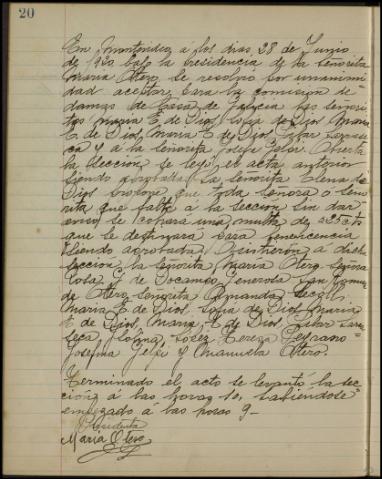 20
En Montevideo, a los dias 28 de Junio
de 1920 bajo la presidencia de la señorita
Maria Otero, se resolvió por unanimi
dad aceptar para la comisión de
damas de Casa de Galicia las señori
tas Maria E de Dios, Sofia de Dios, Maria
E. de Dios, Maria E de Dios, Pilar
y a la señorita Josefa Abierta
la sección se leyó el acta anterior
siendo aprobada. La señorita Elena de
Dios propone que toda señora o seño
rita que falte á la sección sin dar
aviso, se cobrará una multa de
que se destinará para
siendo aprobada. Asistieron á dicha
sección la señorita Maria Otero señora
Rosa G. de Docampo Generosa
de Otero señorita Armanda
Maria E de Dios, Sofia de Dios, Maria
E de Dios, Maria E de Dios, Pilar
Tereza Peyrano
Josefina y Manuela Otero.
Terminado el acto se levantó la sec
ción á las horas 10, habiéndole
empezado á las horas 9-
Presidenta
María Otero